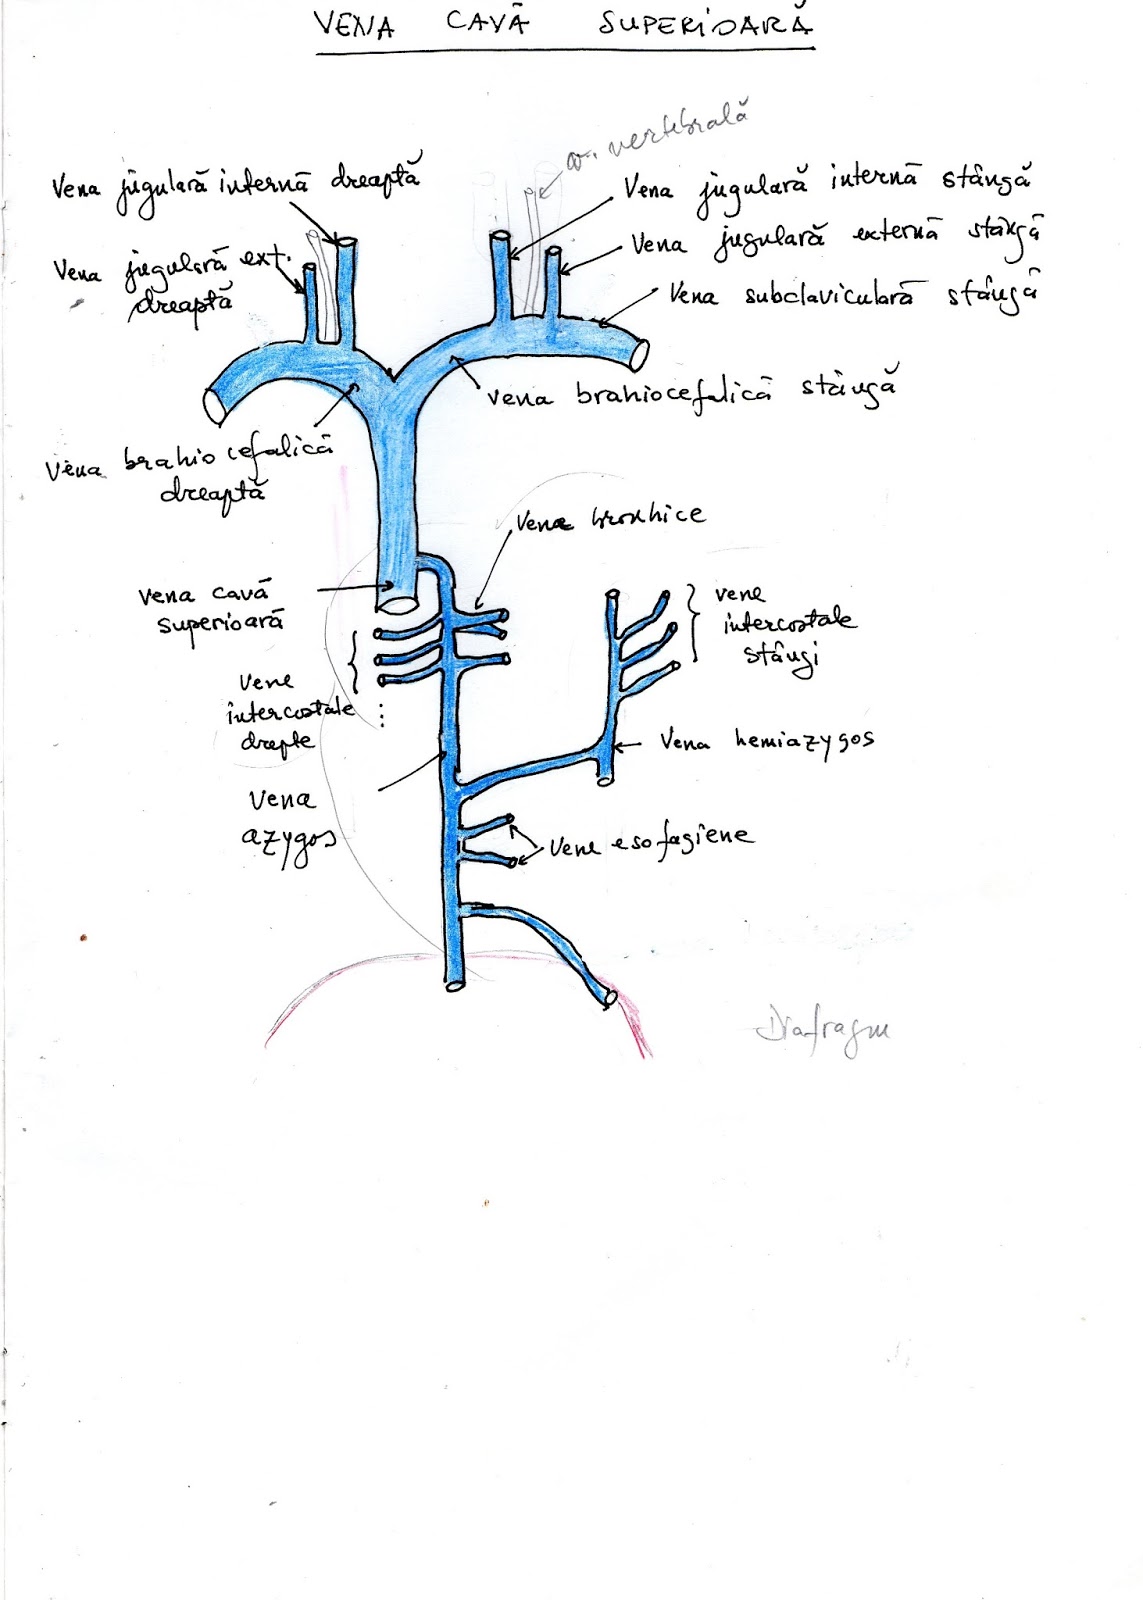 VENA CAVĂ SUPERIOARĂ
v. vertebrală
Vena jugulară internă dreaptă
Vena jugulară internă stângă
Vena jugulară externă stângă
Vena jugulară ext.
dreaptă
Vena subclaviculară stângă
Vena brahiocefalică stângă
Vena brahiocefalică
dreaptă
Vene bronhice
Vena cavă
superioară
vene
intercostale
stângi
Vene
intercostale
drepte
Vena hemiazygos
Vena
azygos
Vene esofagiene
Diafragm